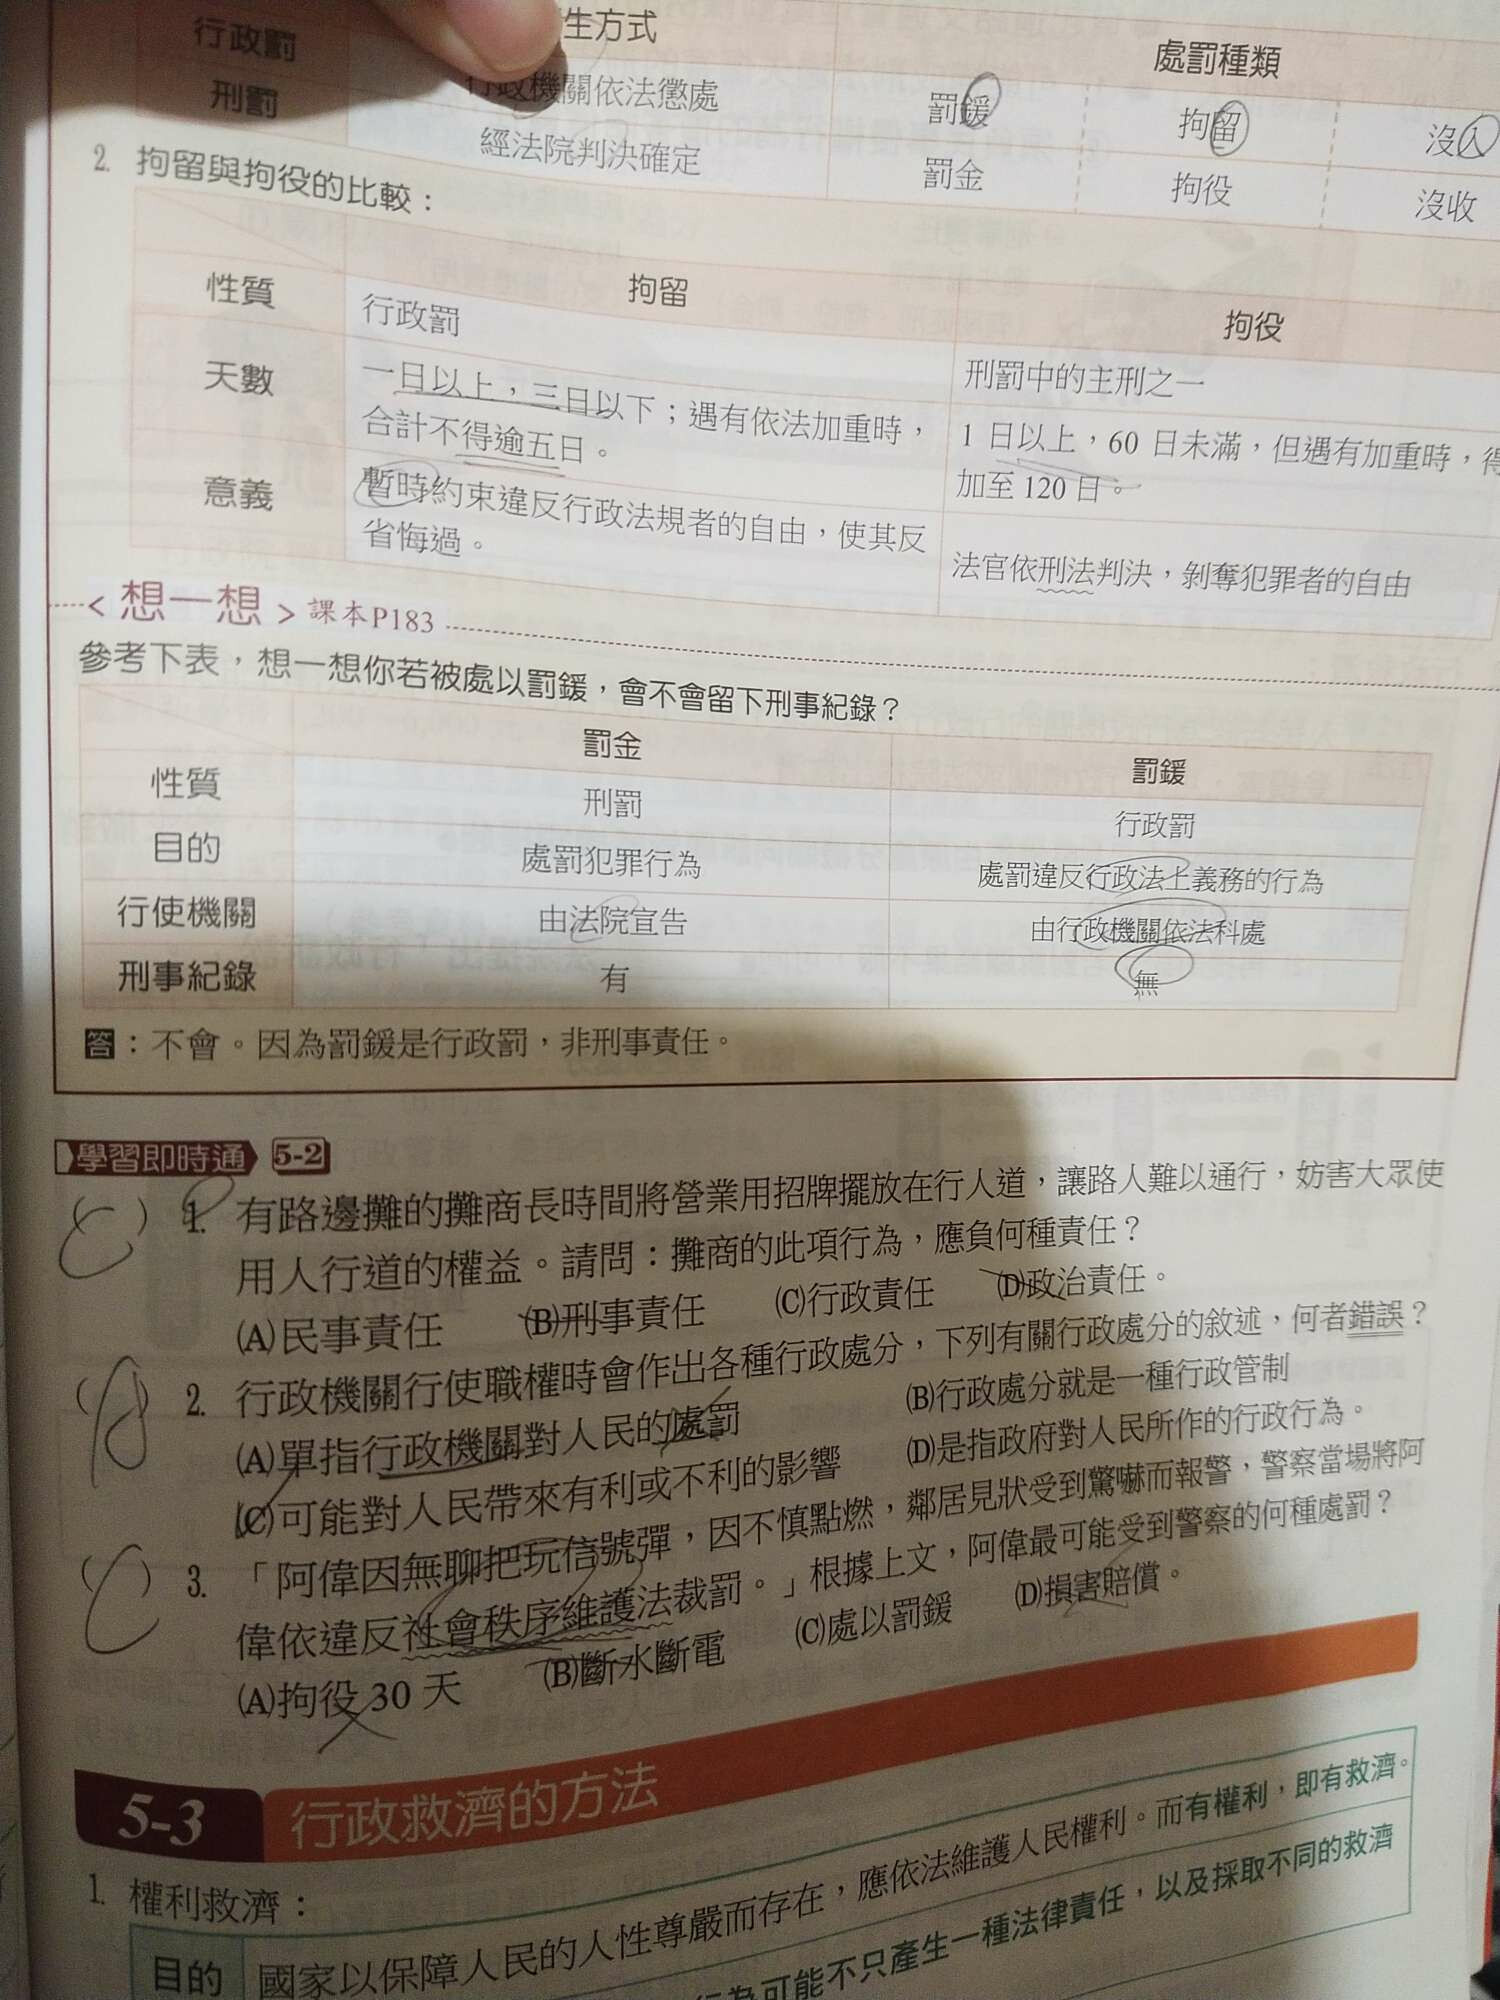 生方式
處罰種類
行政罰
行政機關依法懲處
罰鍰
拘留
沒入
刑罰
經法院判決確定
罰金
拘役
沒收
2. 拘留與拘役的比較：
拘留
拘役
性質
行政罰
刑罰中的主刑之一
天數
一日以上，三日以下；遇有依法加重時，
合計不得逾五日。
1 日以上，60 日未滿，但遇有加重時，得
加至 120 日。
意義
暫時約束違反行政法規者的自由，使其反
省悔過。
法官依刑法判決，剝奪犯罪者的自由
＜想一想＞課本P183
參考下表，想一想你若被處以罰鍰，會不會留下刑事紀錄？
罰金
罰鍰
性質
刑罰
行政罰
目的
處罰犯罪行為
處罰違反行政法上義務的行為
行使機關
由法院宣告
由行政機關依法科處
刑事紀錄
有
無
答：不會。因為罰鍰是行政罰，非刑事責任。
學習即時通 5-2
（C）1. 有路邊攤的攤商長時間將營業用招牌擺放在行人道，讓路人難以通行，妨害大眾使
用人行道的權益。請問：攤商的此項行為，應負何種責任？
(A)民事責任 (B)刑事責任 (C)行政責任 (D)政治責任。
（A）2. 行政機關行使職權時會作出各種行政處分，下列有關行政處分的敘述，何者錯誤？
(A)單指行政機關對人民的處罰 (B)行政處分就是一種行政管制
(C)可能對人民帶來有利或不利的影響 (D)是指政府對人民所作的行政行為。
（C）3. 「阿偉因無聊把玩信號彈，因不慎點燃，鄰居見狀受到驚嚇而報警，警察當場將阿
偉依違反社會秩序維護法裁罰。」根據上文，阿偉最可能受到警察的何種處罰？
(A)拘役 30 天 (B)斷水斷電 (C)處以罰鍰 (D)損害賠償。
5-3 行政救濟的方法
1. 權利救濟：
目的
國家以保障人民的人性尊嚴而存在，應依法維護人民權利。而有權利，即有救濟。
行為可能不只產生一種法律責任，以及採取不同的救濟